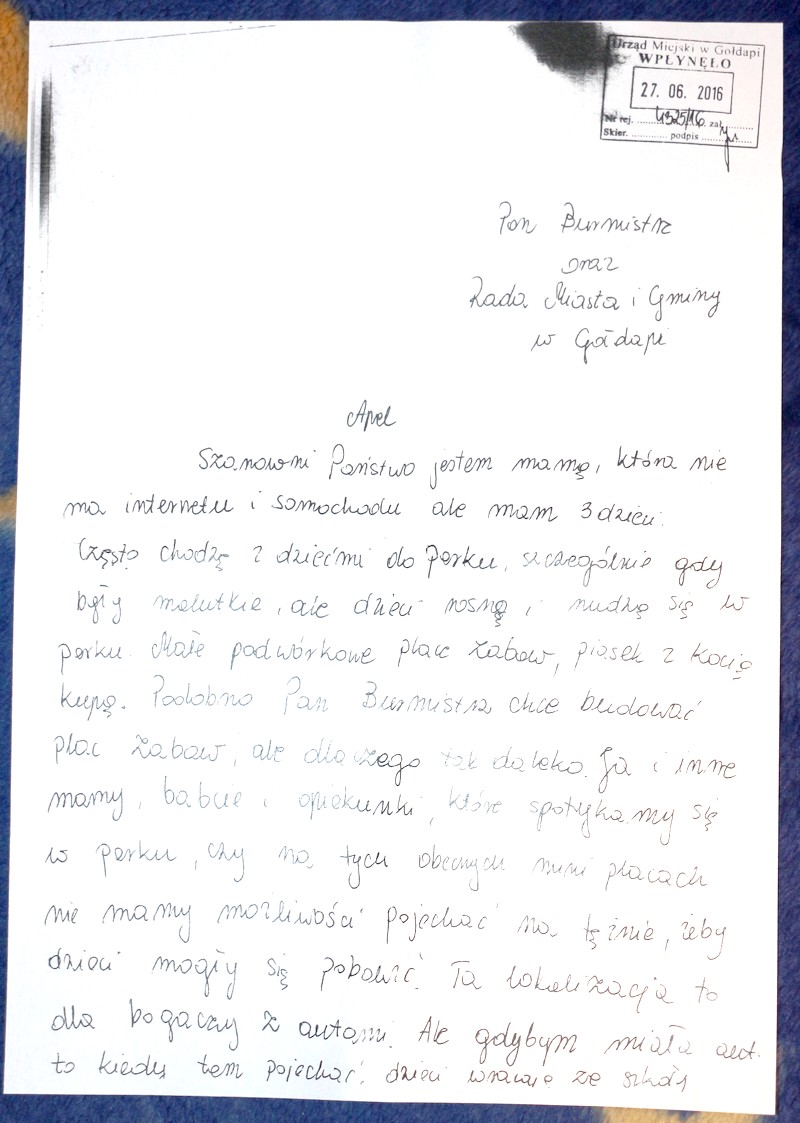 Urząd Miejski w Gołdapi
WPŁYNĘŁO
27. 06. 2016
Nr rej. 4325/16 zał.
Skier. podpis
Pan Burmistrz
oraz
Rada Miasta i Gminy
w Gołdapi
Apel
Szanowni Państwo jestem mamą, która nie
ma internetu i samochodu ale mam 3 dzieci.
Często chodzę z dziećmi do parku, szczególnie gdy
były malutkie, ale dzieci rosną i nudzą się w
parku. Małe podwórkowe place zabaw, piasek z kocią
kupą. Podobno Pan Burmistrz chce budować
plac zabaw, ale dlaczego tak daleko. Ja i inne
mamy, babcie i opiekunki, które spotykamy się
w parku, czy na tych obecnych mini placach
nie mamy możliwości pojechać na tężnie, żeby
dzieci mogły się pobawić. Ta lokalizacja to
dla bogaczy z autami. Ale gdybym miała aut.
to kiedy tam pojechać. dzieci wracają ze szkoły